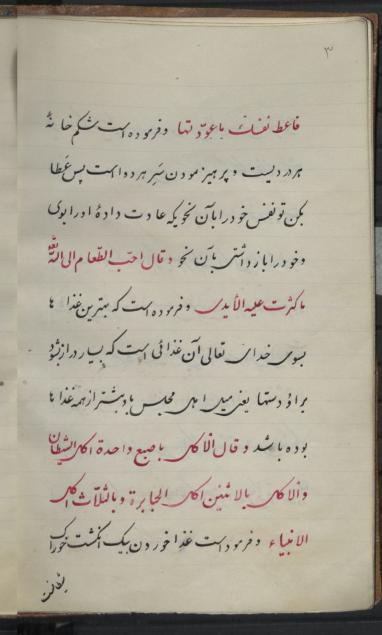 ۳
فاعط نفسک ما عودتها و فرموده است شکم خانهٔ
هر دردیست و پرهیز نمودن سر هر دوا است پس عطا
بکن تو نفس خود را بآن نحویکه عادت دادهٔ او را بوی
و خود را بازداشتی بآن نحو و قال احب الطعام الی الله
ما کثرت علیه الأیدی و فرموده است که بهترین غذاها
بسوی خدای تعالی آن غذائی است که بسیار دراز بشود
بر او دستها یعنی میل اهل مجلس باو بیشتر از همه غذاها
بوده باشد و قال الاکل باصبع واحدة اکل الشیطان
و الاکل بالاثنین اکل الجبابرة و بالثلاث اکل
الانبیاء و فرموده است غذا خوردن بیک انگشت خوراک